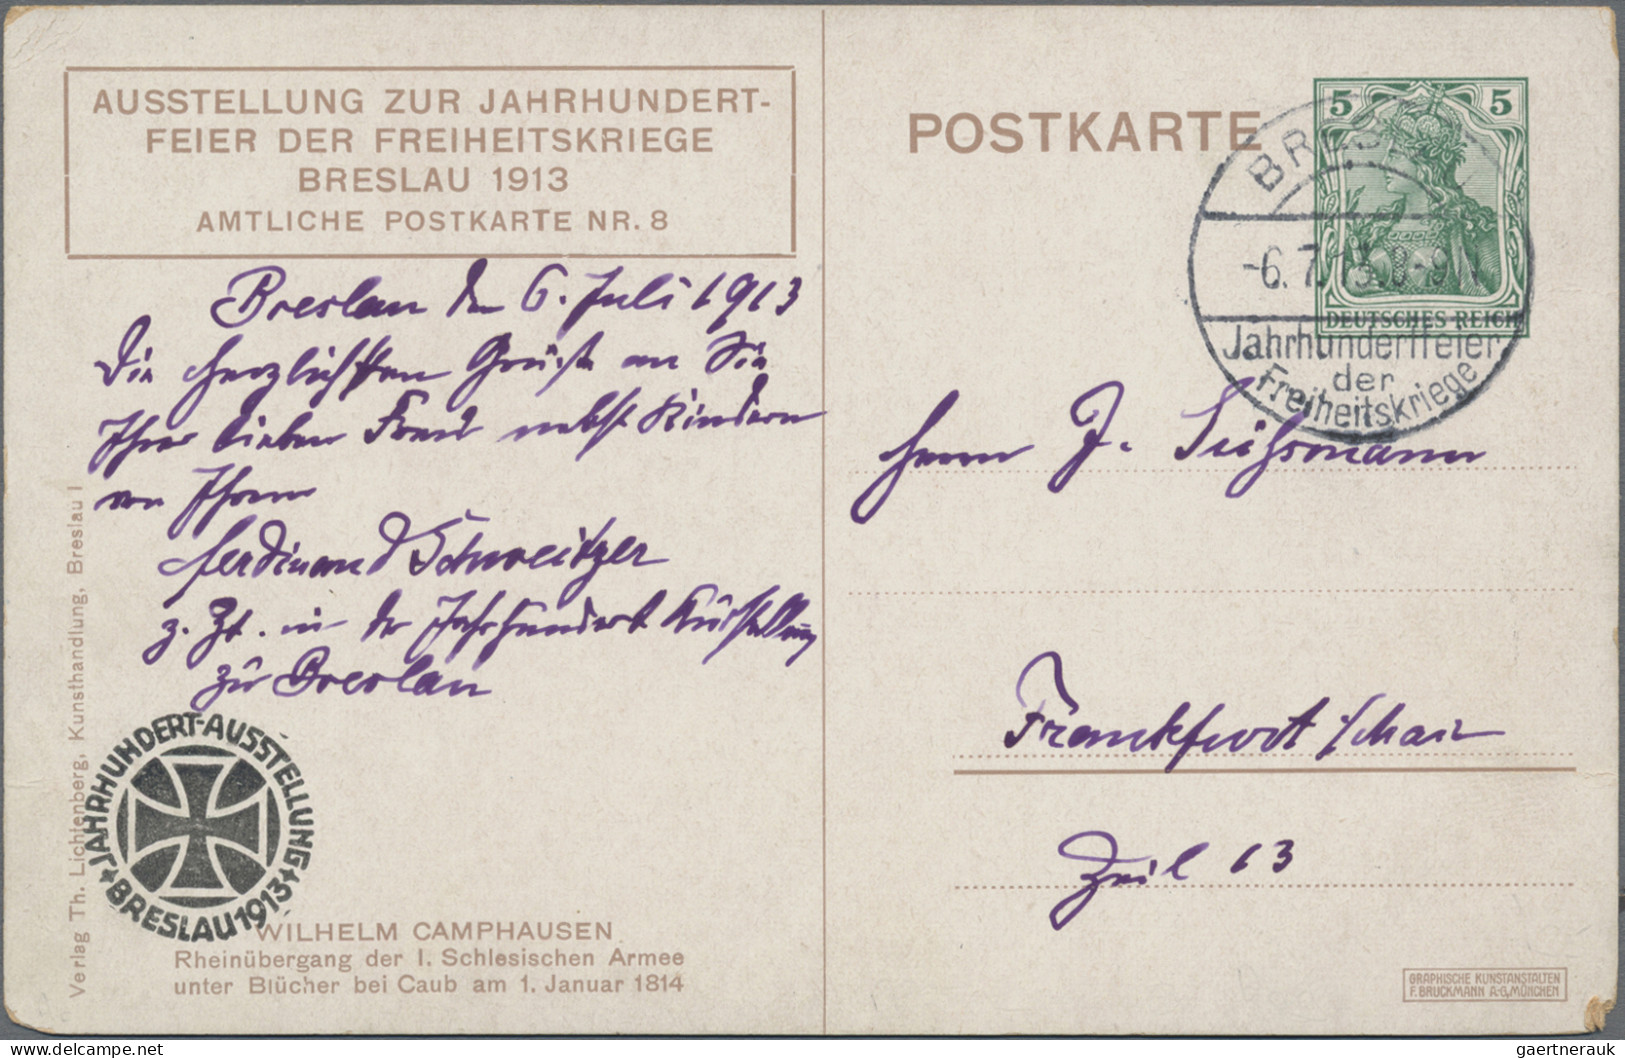 AUSSTELLUNG ZUR JAHRHUNDERT-
FEIER DER FREIHEITSKRIEGE
BRESLAU 1913
AMTLICHE POSTKARTE NR. 8
Breslau den 6. Juli 1913
Die herzlichsten Grüße an Sie
Ihrer lieben Frau nebst Kindern
von Ihrem
Ferdinand Schweitzer
z. Zt. in der Jahrhundert Ausstellung
zu Breslau
Verlag Th. Lichtenberg, Kunsthandlung, Breslau I
JAHRHUNDERT-AUSSTELLUNG
BRESLAU 1913
WILHELM CAMPHAUSEN
Rheinübergang der I. Schlesischen Armee
unter Blücher bei Caub am 1. Januar 1814
POSTKARTE
5 5
DEUTSCHES REICH
-6.7.13.8-9
Jahrhundertfeier
der
Freiheitskriege
Herrn J. Süßmann
Frankfurt /Main
Zeil 13
GRAPHISCHE KUNSTANSTALTEN
F. BRUCKMANN A-G, MÜNCHEN
www.delcampe.net
gaertnerauk